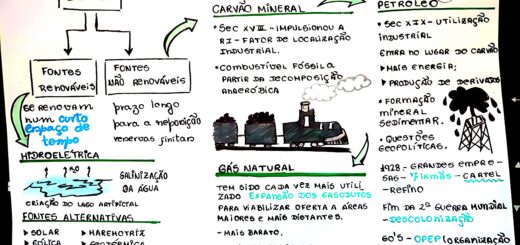 FONTES
RENOVÁVEIS
FONTES
NÃO RENOVÁVEIS
SE RENOVAM
NUM CURTO
ESPAÇO DE
TEMPO
prazo longo
para a reposição
reservas finitas
HIDROELÉTRICA
H₂O
SALINIZAÇÃO
DA ÁGUA
CRIAÇÃO DO LAGO ARTIFICIAL
FONTES ALTERNATIVAS
▸ SOLAR
▸ EÓLICA
▸ MAREMOTRIZ
▸ GEOTÉRMICA
CARVÃO MINERAL
• SEC XVIII - IMPULSIONOU A
RI - FATOR DE LOCALIZAÇÃO
INDUSTRIAL.
• COMBUSTÍVEL FÓSSIL A
PARTIR DA DECOMPOSIÇÃO
ANAERÓBICA
GÁS NATURAL
TEM SIDO CADA VEZ MAIS UTILI
ZADO EXPANSÃO DOS GASODUTOS
PARA VIABILIZAR OFERTA A ÁREAS
MAIORES E MAIS DISTANTES.
- MAIS BARATO.
PETRÓLEO
• SEC XIX - UTILIZAÇÃO
INDUSTRIAL
ENTRA NO LUGAR DO CARVÃO
▸ MAIS ENERGIA;
▸ PRODUÇÃO DE DERIVADOS
• FORMAÇÃO
MINERAL
SEDIMENTAR.
• QUESTÕES
GEOPOLÍTICAS.
1928 - GRANDES EMPRE-
SAS - 7 IRMÃS - CARTEL
- REFINO
FIM DA 2ª GUERRA MUNDIAL
- DESCOLONIZAÇÃO
60'S - OPEP (ORGANIZAÇÃO